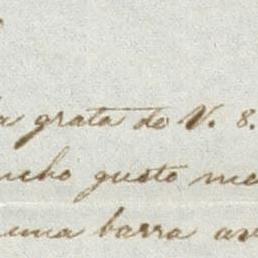 la grata de V. S.
mucho gusto me
una barra av